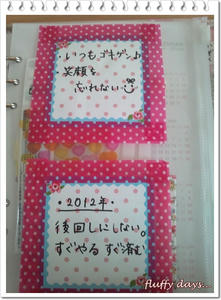 ・いつもゴキゲン♪
笑顔を
忘れない
・2012年・
後回しにしない。
すぐやる すぐ済む
fluffy days..